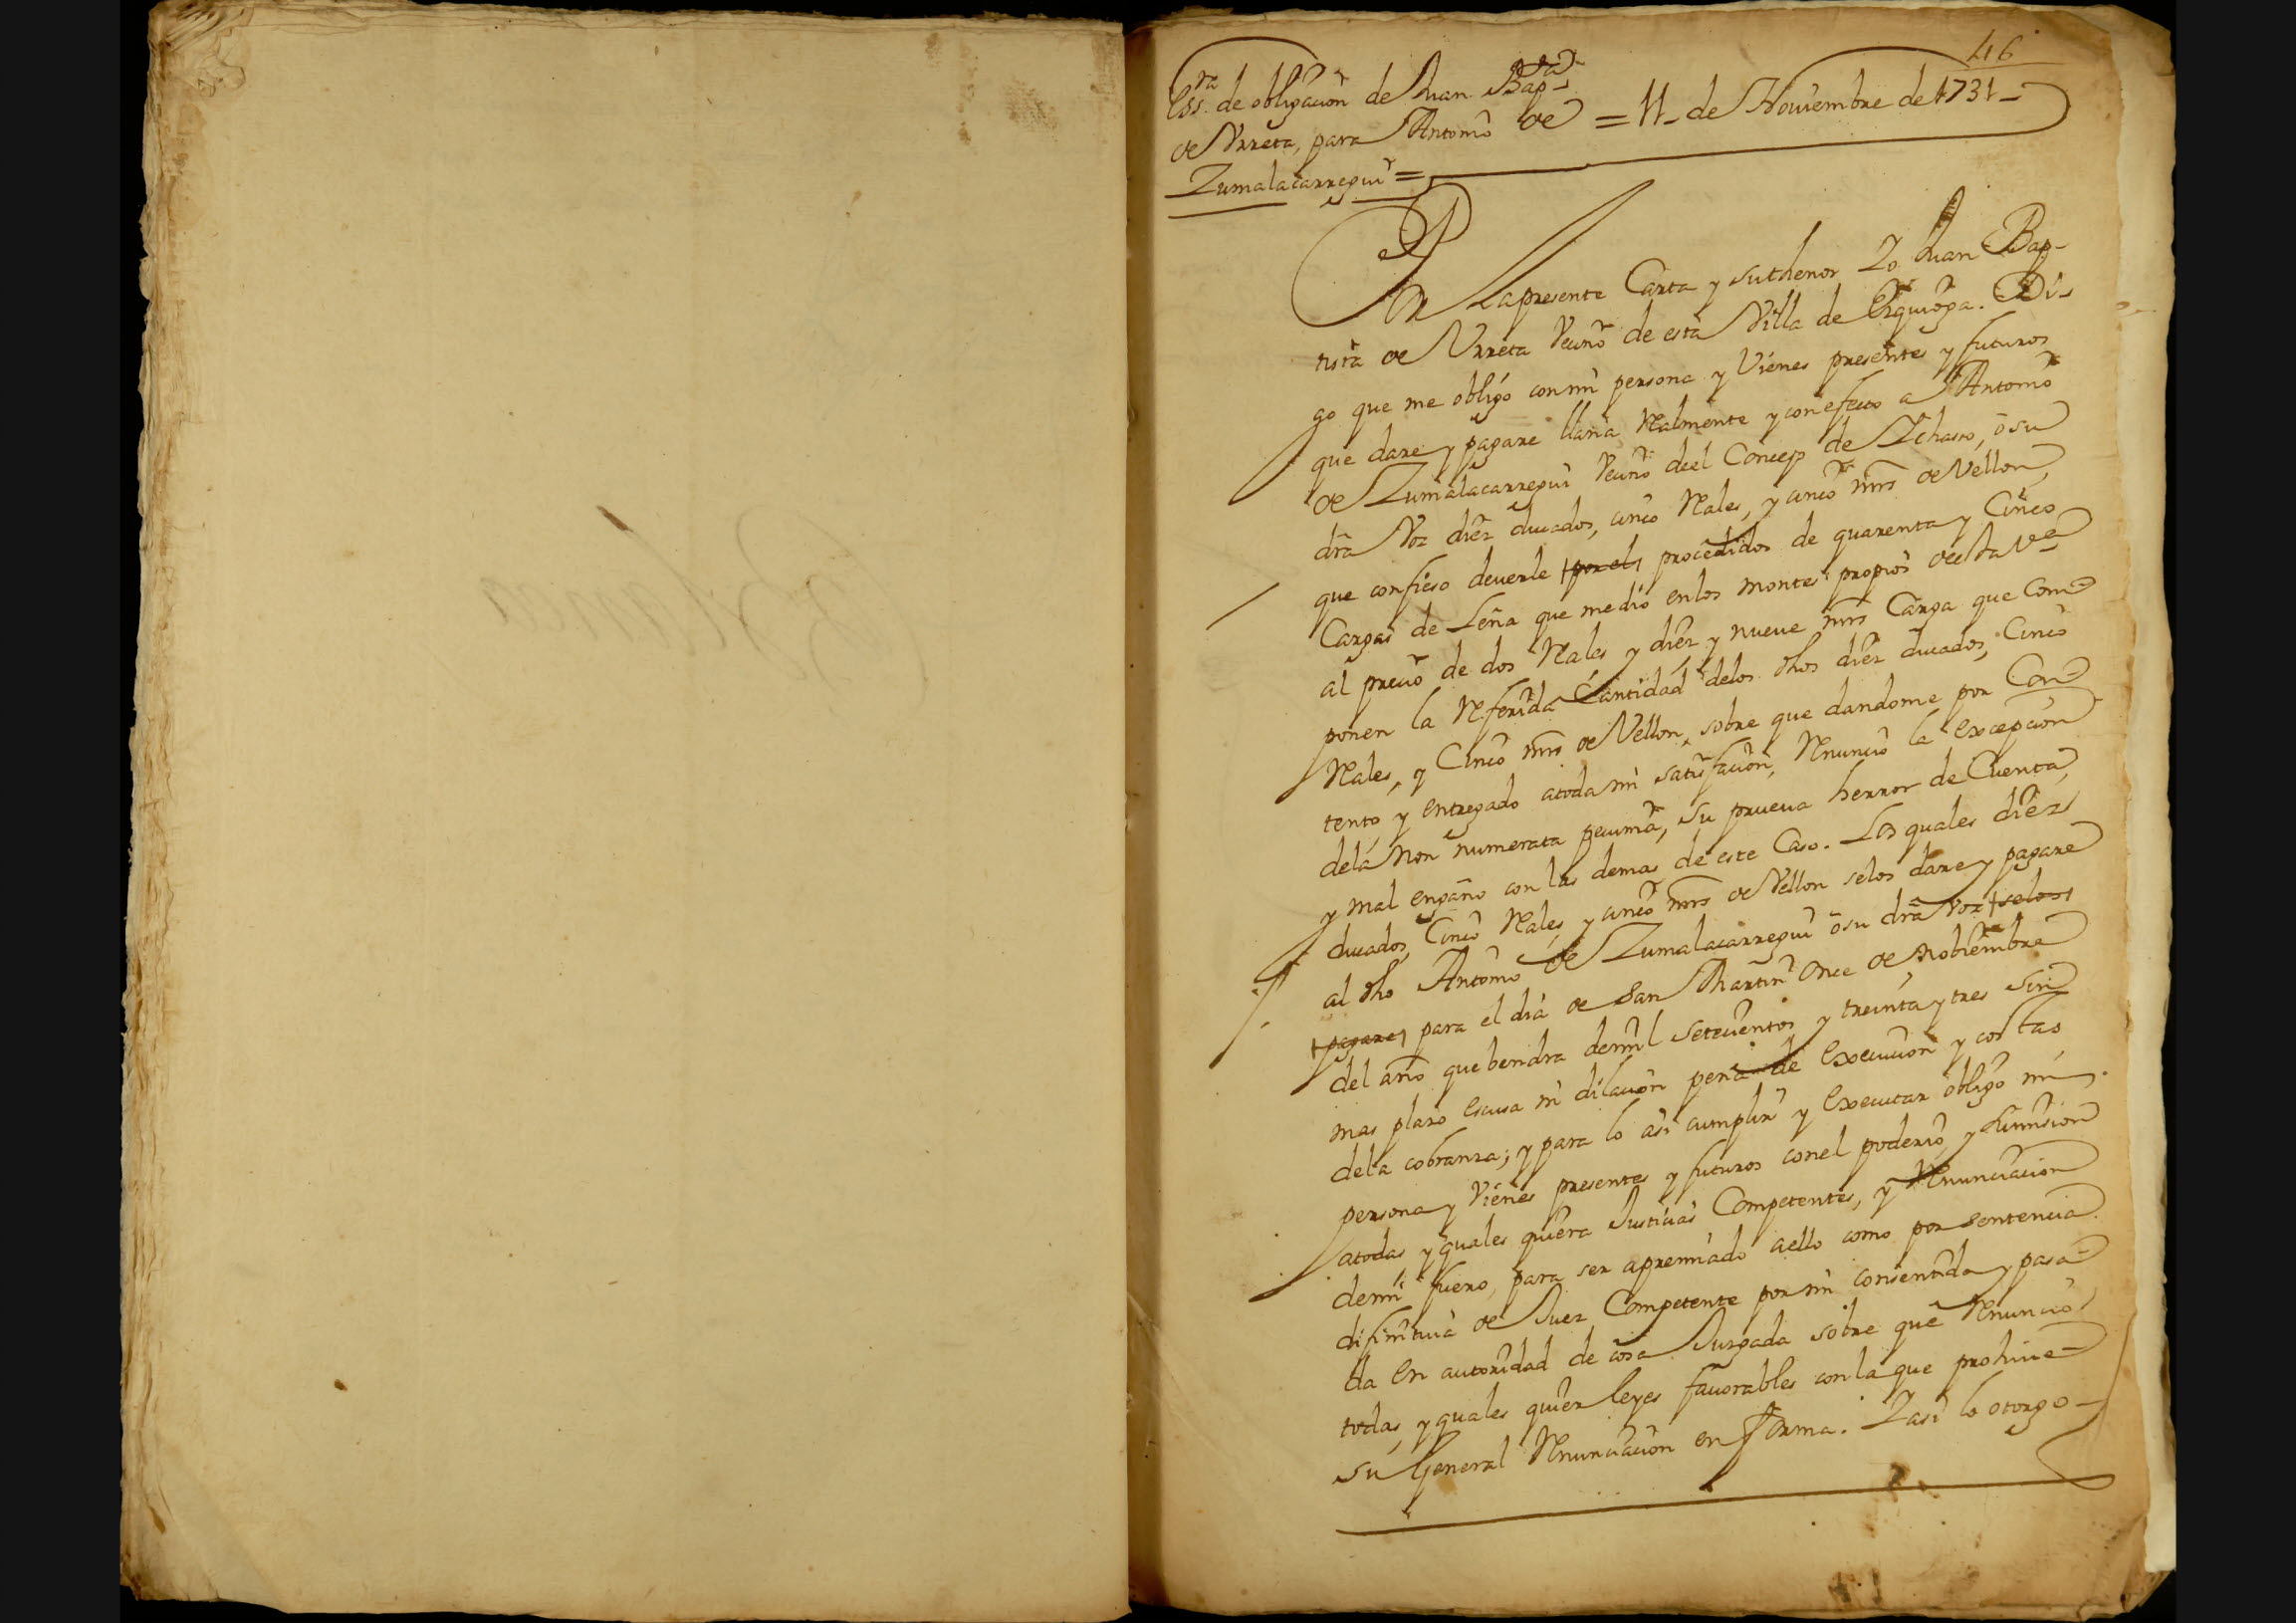 46
Ess.ra de obligacion de Juan Bap.ta
de Vrreta, para Antonio de = 11 - de Nouiembre de 1731 -
Zumalacarregui =
En La presente Carta y su thenor Yo Juan Bap-
tista de Vrreta Vecino de esta Villa de Ezquioga. Di-
go que me obligo con mi persona y Vienes presentes y futuros
que dare y pagare llana Realmente y con efecto a Antonio
de Zumalacarregui Vecino deel Concejo de Ichasso, o su
dra Voz diez ducados, cinco Reales, y cinco mrs de Vellon,
que confieso deuerle por el procedidos de quarenta y Cinco
Cargas de Leña que me dio en los montes propios de esta Va
al precio de dos Reales y diez y nueue mrs Carga que com-
ponen la Referida Cantidad delos dhos diez ducados, Cinco
Reales, y Cinco mrs de Vellon, sobre que dandome por Con-
tento, y entregado atoda mi satisfacion, Renuncio la excepcion
dela non numerata pecunia, su prueua herror de Cuenta,
y mal engaño con las demas de este Caso. Los quales diez
ducados, Cinco Reales, y cinco mrs de Vellon selos dare y pagare
al dho Antonio de Zumalacarregui o su dra voz selos
pagare para el dia de San Martin Once de Nobiembre
del año que bendra demil setecientos y treinta y tres sin
mas plazo escusa ni dilacion pena de execucion y costas
dela cobranza; y para lo asi cumplir y executar obligo mi
persona y Vienes presentes y futuros conel poderio, y sumision
atodas, y quales quiera Justicias Competentes, y Renunciacion
demi fuero, para ser apremiado aello como por sentencia
difinitiua de Juez Competente por mi consentida y pasa-
da en autoridad de cosa Juzgada sobre que Renuncio
todas, y quales quier leyes fauorables con la que prohiue
su General Renunciacion en forma. Yasi lo otorgo -